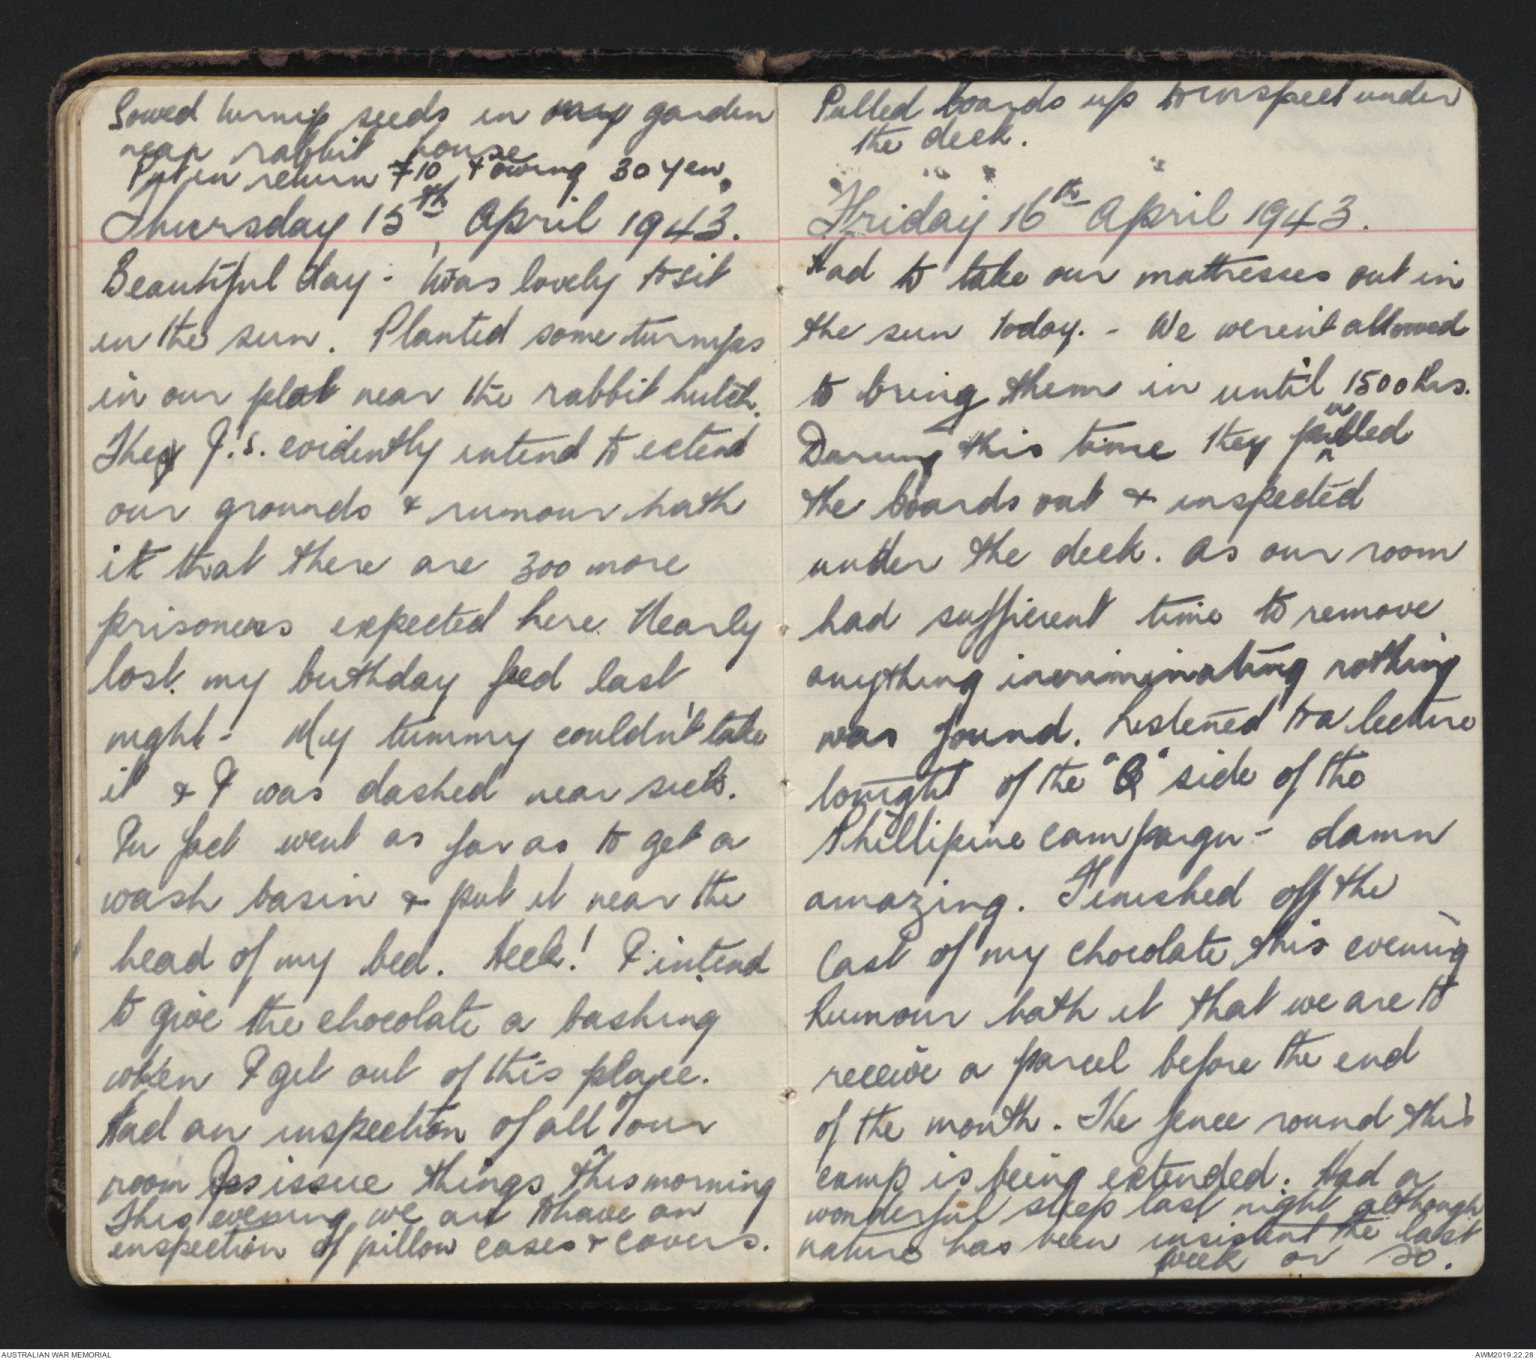 Sowed turnip seeds in my garden
near rabbit house
Put in return £10 & owing 30 yen.
Thursday 15th April 1943.
Beautiful day - Was lovely to sit
in the sun. Planted some turnips
in our plot near the rabbit hutch.
They J.S. evidently intend to extend
our grounds & rumour hath
it that there are 300 more
prisoners expected here. Nearly
lost my birthday feed last
night - My tummy couldn't take
it & I was dashed near sick.
In fact went as far as to get a
wash basin & put it near the
head of my bed. Heck! I intend
to give the chocolate a bashing
when I get out of this place.
Had an inspection of all our
room issue things this morning
This evening we are to have an
inspection of pillow cases & covers.
Pulled boards up to inspect under
the deck.
Friday 16th April 1943.
Had to take our mattresses out in
the sun today. - We weren't allowed
to bring them in until 1500 hrs.
During this time they pulled
the boards out & inspected
under the deck. As our room
had sufficient time to remove
anything incriminating nothing
was found. Listened to a lecture
tonight of the "Q" side of the
Phillipine campaign - damn
amazing. Finished off the
last of my chocolate this evening
Rumour hath it that we are to
receive a parcel before the end
of the month. The fence round this
camp is being extended. Had a
wonderful sleep last night although
nature has been insistent the last
week or so.
AUSTRALIAN WAR MEMORIAL
AWM2019.22.28